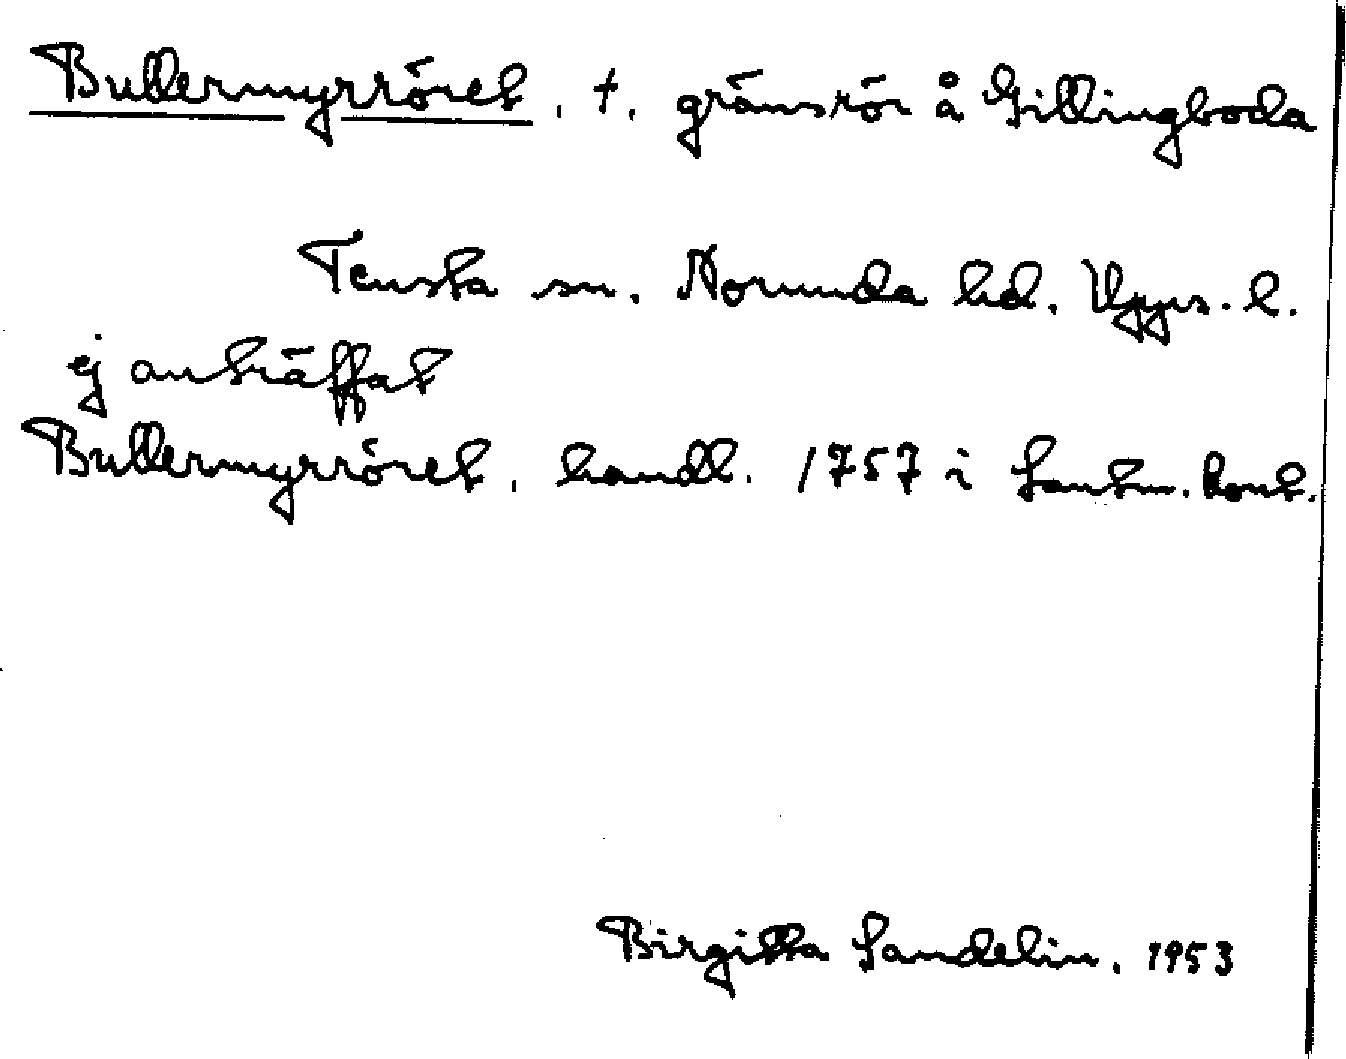 Bullermyrröret, †, gränsrör å Gillingboda
Tensta sn. Norunda hd. Upps. l.
ej anträffat
Bullermyrröret, handl. 1757 i Lantm. kont.
Birgitta Sandelin, 1953